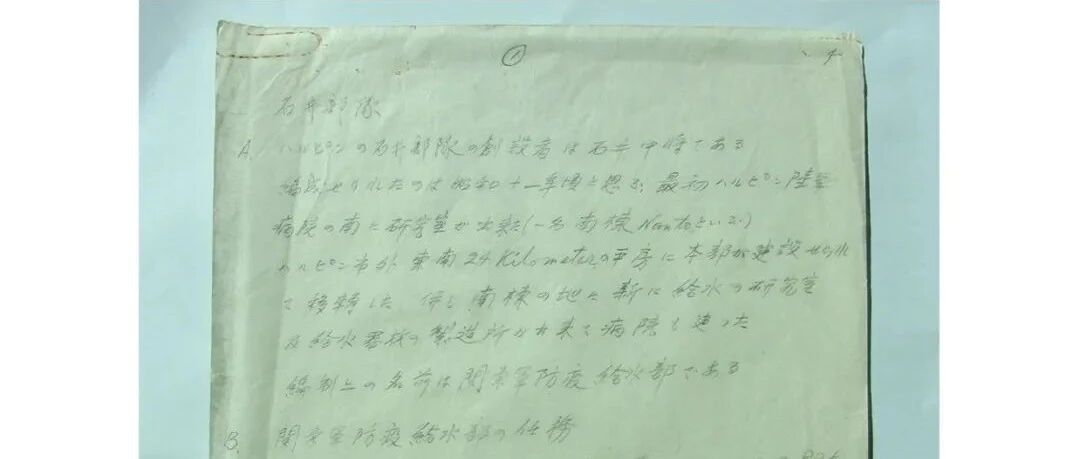 ①
石井部隊
A. ハルピンの石井部隊の創設者は石井中将である
編成せられたのは昭和十一年頃と思う、最初ハルピン陸軍
病院の南に研究室が出来た(一名南棟Nantoという)
ハルピン市外東南24Kilometerの平房に本部が建設せられ
て移転した 併し南棟の地に新に給水の研究室
及給水器材の製造所が出来て病院も建った
編制上の名前は関東軍防疫給水部である
B. 関東軍防疫給水部の任務